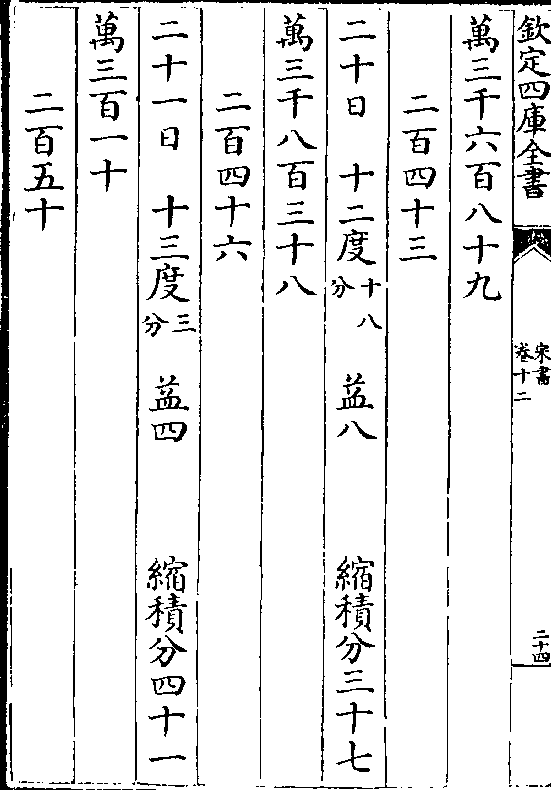 欽定四庫全書
宋書
卷十二
二十四
萬三千六百八十九
二百四十三
二十日 十二度十八分 益八 縮積分三十七
萬三千八百三十八
二百四十六
二十一日 十三度三分 益四 縮積分四十一
萬三百一十
二百五十